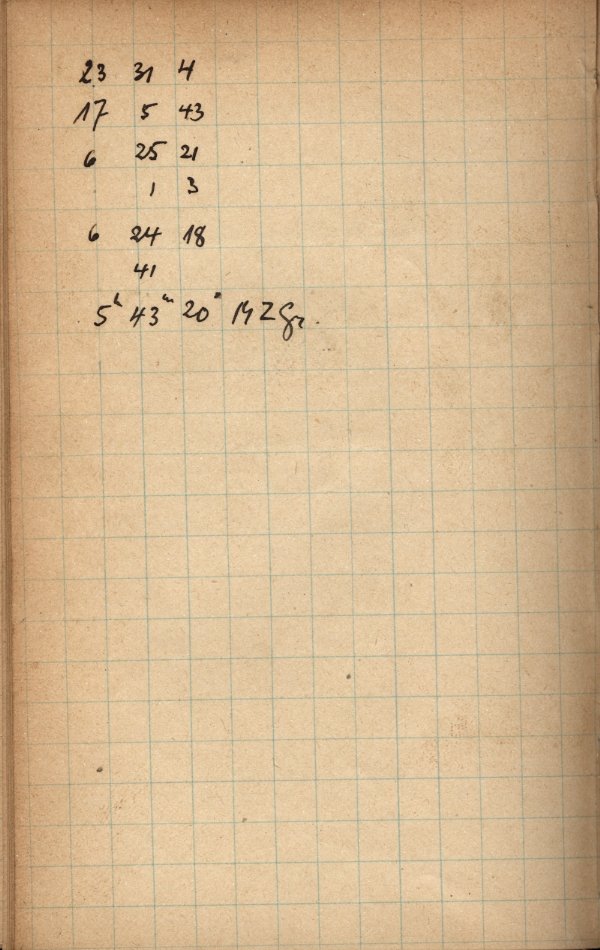 23 31 4
17 5 43
6 25 21
1 3
6 24 18
41
5h 43m 20s MZ Gr.